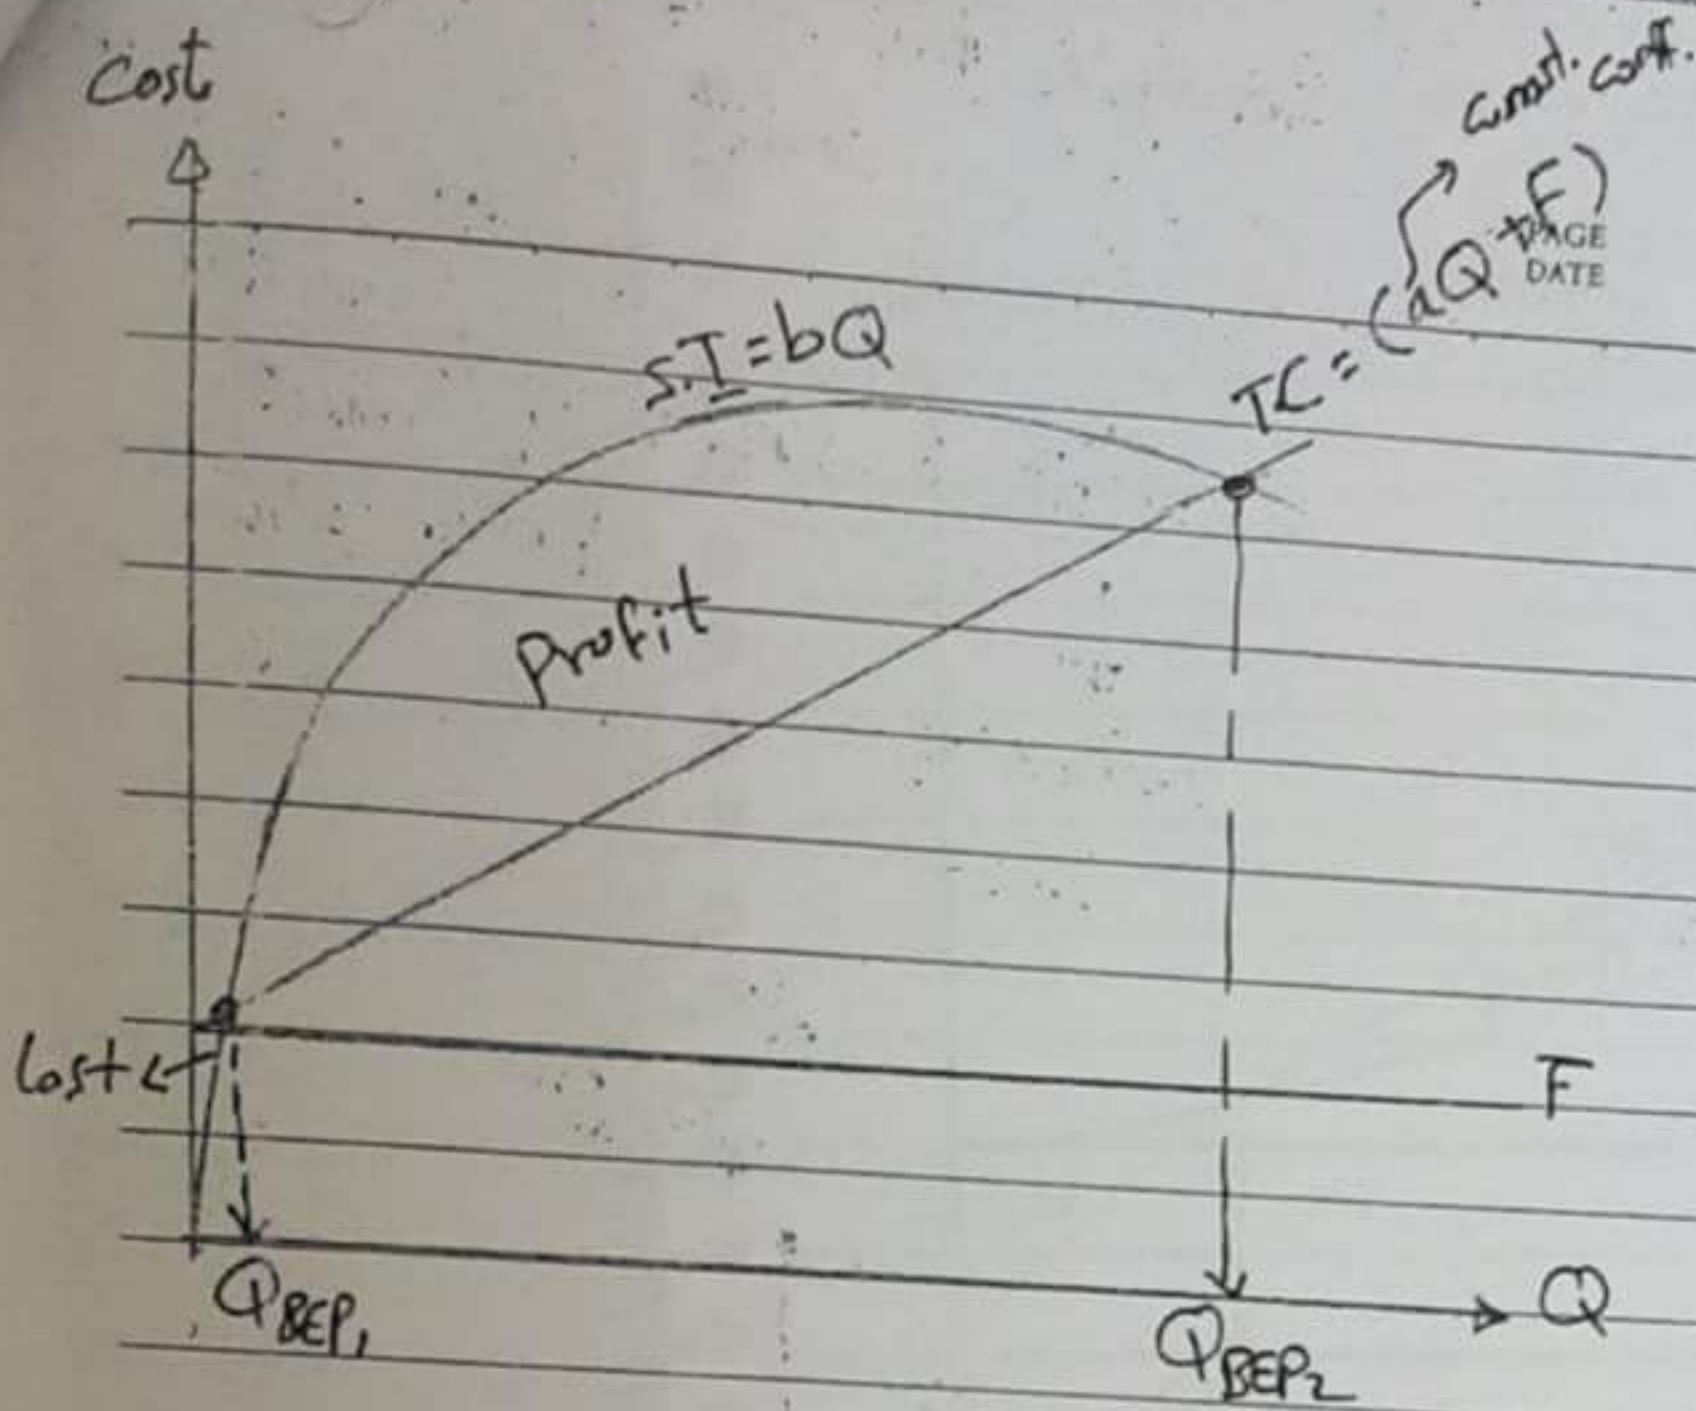 Cost
const. coff.
PAGE
DATE
S.I=bQ
TC = (aQ+F)
Profit
lost
F
Q
QBEP1
QBEP2